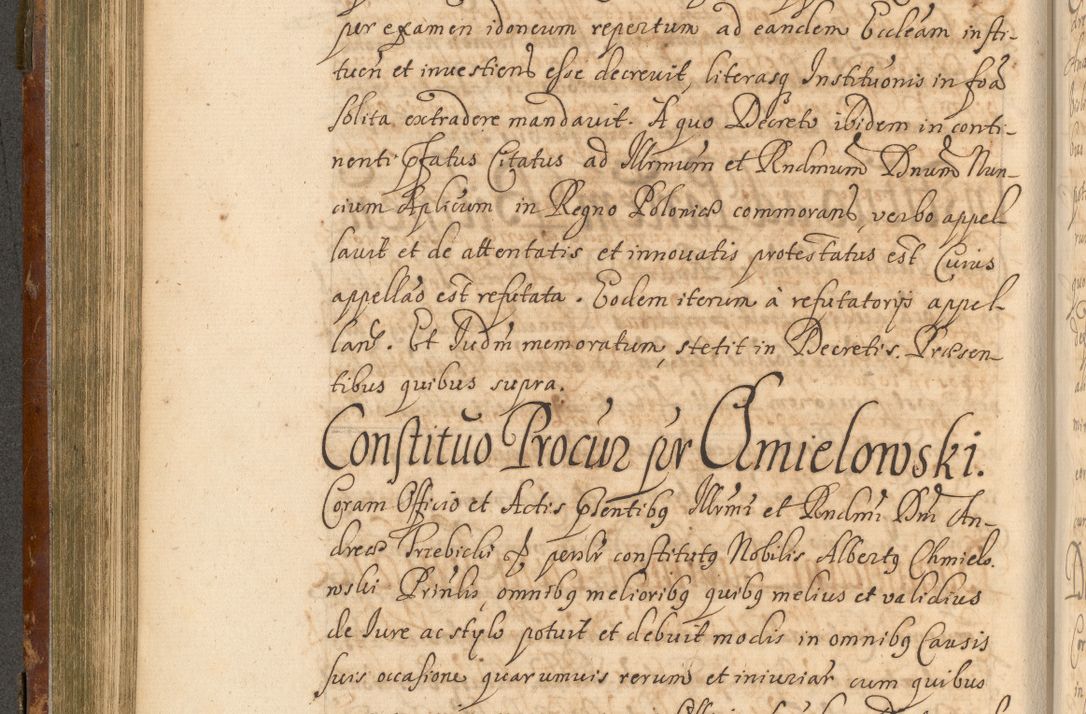 per examen idoneum repertum ad eandem Eccleam insti-
tuen̄ et investienđ esse decrevit, literasq Institu͠onis in foa
solita extradere mandavit. A quo Decreto ibidem in conti-
nenti pfatus Citatus ad Illrmum et Rndmum Dnum Nun-
cium Aplicum in Regno Poloniæ commorans, verbo appel-
lavit et de attentatis et innovatis protestatus est Cuius
appellaō est refutata. Eodem iterum à refutatorijs appel-
lanť. Et Judm memoratum, stetit in Decretis. Præsen-
tibus quibus supra.
Constituo Procur pr Chmielowski.
Coram Officio et Actis psentibq Illrmi et Rndmi Dni An-
dreæ Trzebicki personlr constitutq Nobilis Albertq Chmielo.
wski Prinlis, omnibq melioribq quibq melius et validius
de Jure ac stylo potuit et debuit modis in omnibq Causis
suis occasione quarumvis rerum et iniuriar cum quibus